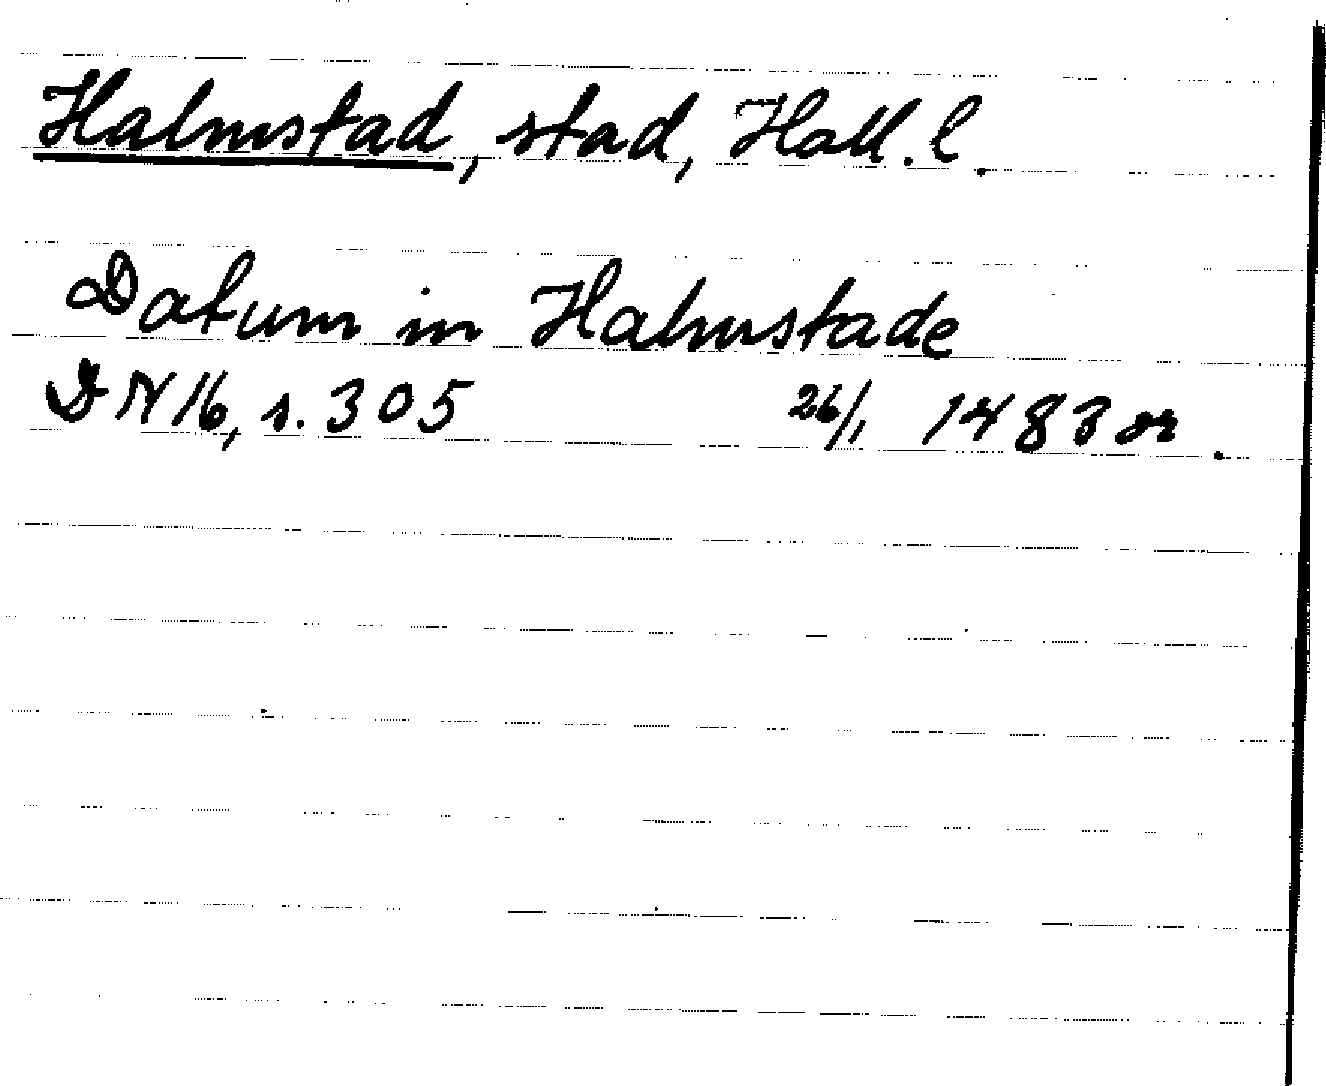 Halmstad, stad, Hall. l.
Datum in Halmstade
DN 16, s. 305 26/1 1483 or.